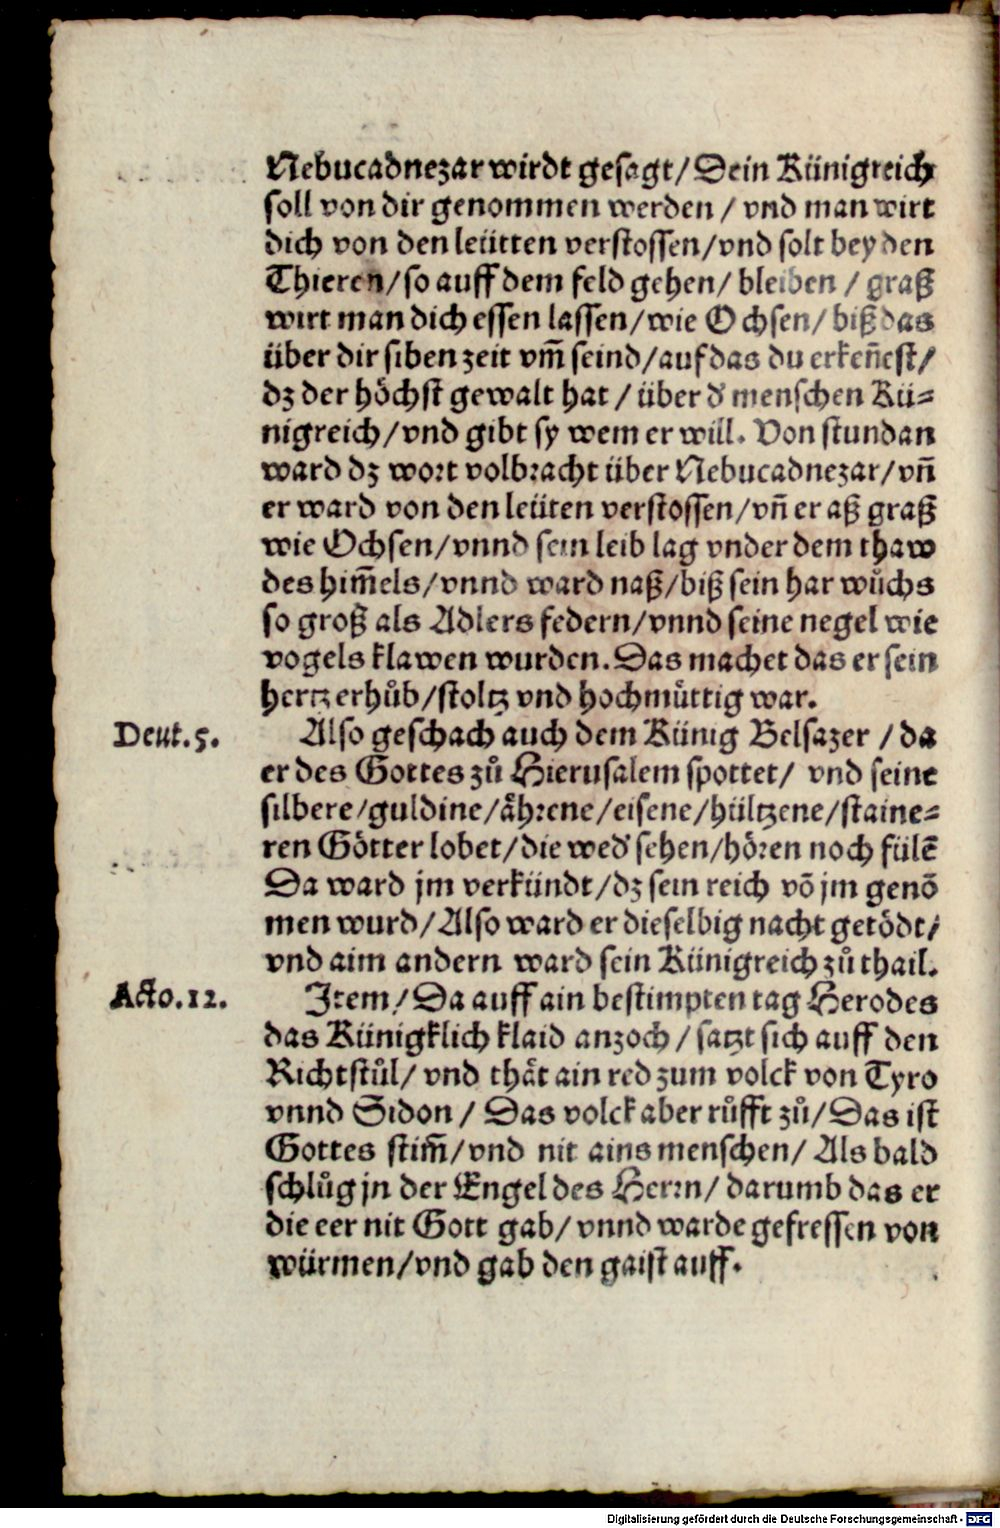 Nebucadnezar wirdt gesagt/Dein Künigreich
soll von dir genommen werden / vnd man wirt
dich von den leütten verstossen/vnd solt bey den
Thieren/so auff dem feld gehen/ bleiben / graß
wirt man dich essen lassen/wie Ochsen/ biß das
über dir siben zeit vm̃ seind/auf das du erkeñest/
dz der höchst gewalt hat / über d' menschen Kü=
nigreich/vnd gibt sy wem er will. Von stundan
ward dz wort volbracht über Nebucadnezar/vñ
er ward von den leüten verstossen/vñ er aß graß
wie Ochsen/vnnd sein leib lag vnder dem thaw
des him̃els/vnnd ward naß/biß sein har wůchs
so groß als Adlers federn/vnnd seine negel wie
vogels klawen wurden. Das machet das er sein
hertz erhůb/stoltz vnd hochmůttig war.
Deut.5.
Also geschach auch dem Künig Belsazer / da
er des Gottes zů Hierusalem spottet/ vnd seine
silbere/guldine/åhrene/eisene/hültzene/staine=
ren Götter lobet/die wed' sehen/hören noch fülẽ
Da ward jm verkündt/dz sein reich võ jm genõ
men wurd/Also ward er dieselbig nacht getödt/
vnd aim andern ward sein Künigreich zů thail.
Acto.12.
Item/Da auff ain bestimpten tag Herodes
das Künigklich klaid anzoch / satzt sich auff den
Richtstůl/ vnd thåt ain red zum volck von Tyro
vnnd Sidon / Das volck aber růfft zů/Das ist
Gottes stim̃/vnd nit ains menschen/ Als bald
schlůg jn der Engel des Herrn/ darumb das er
die eer nit Gott gab/vnnd warde gefressen von
würmen/vnd gab den gaist auff.
Digitalisierung gefördert durch die Deutsche Forschungsgemeinschaft - DFG